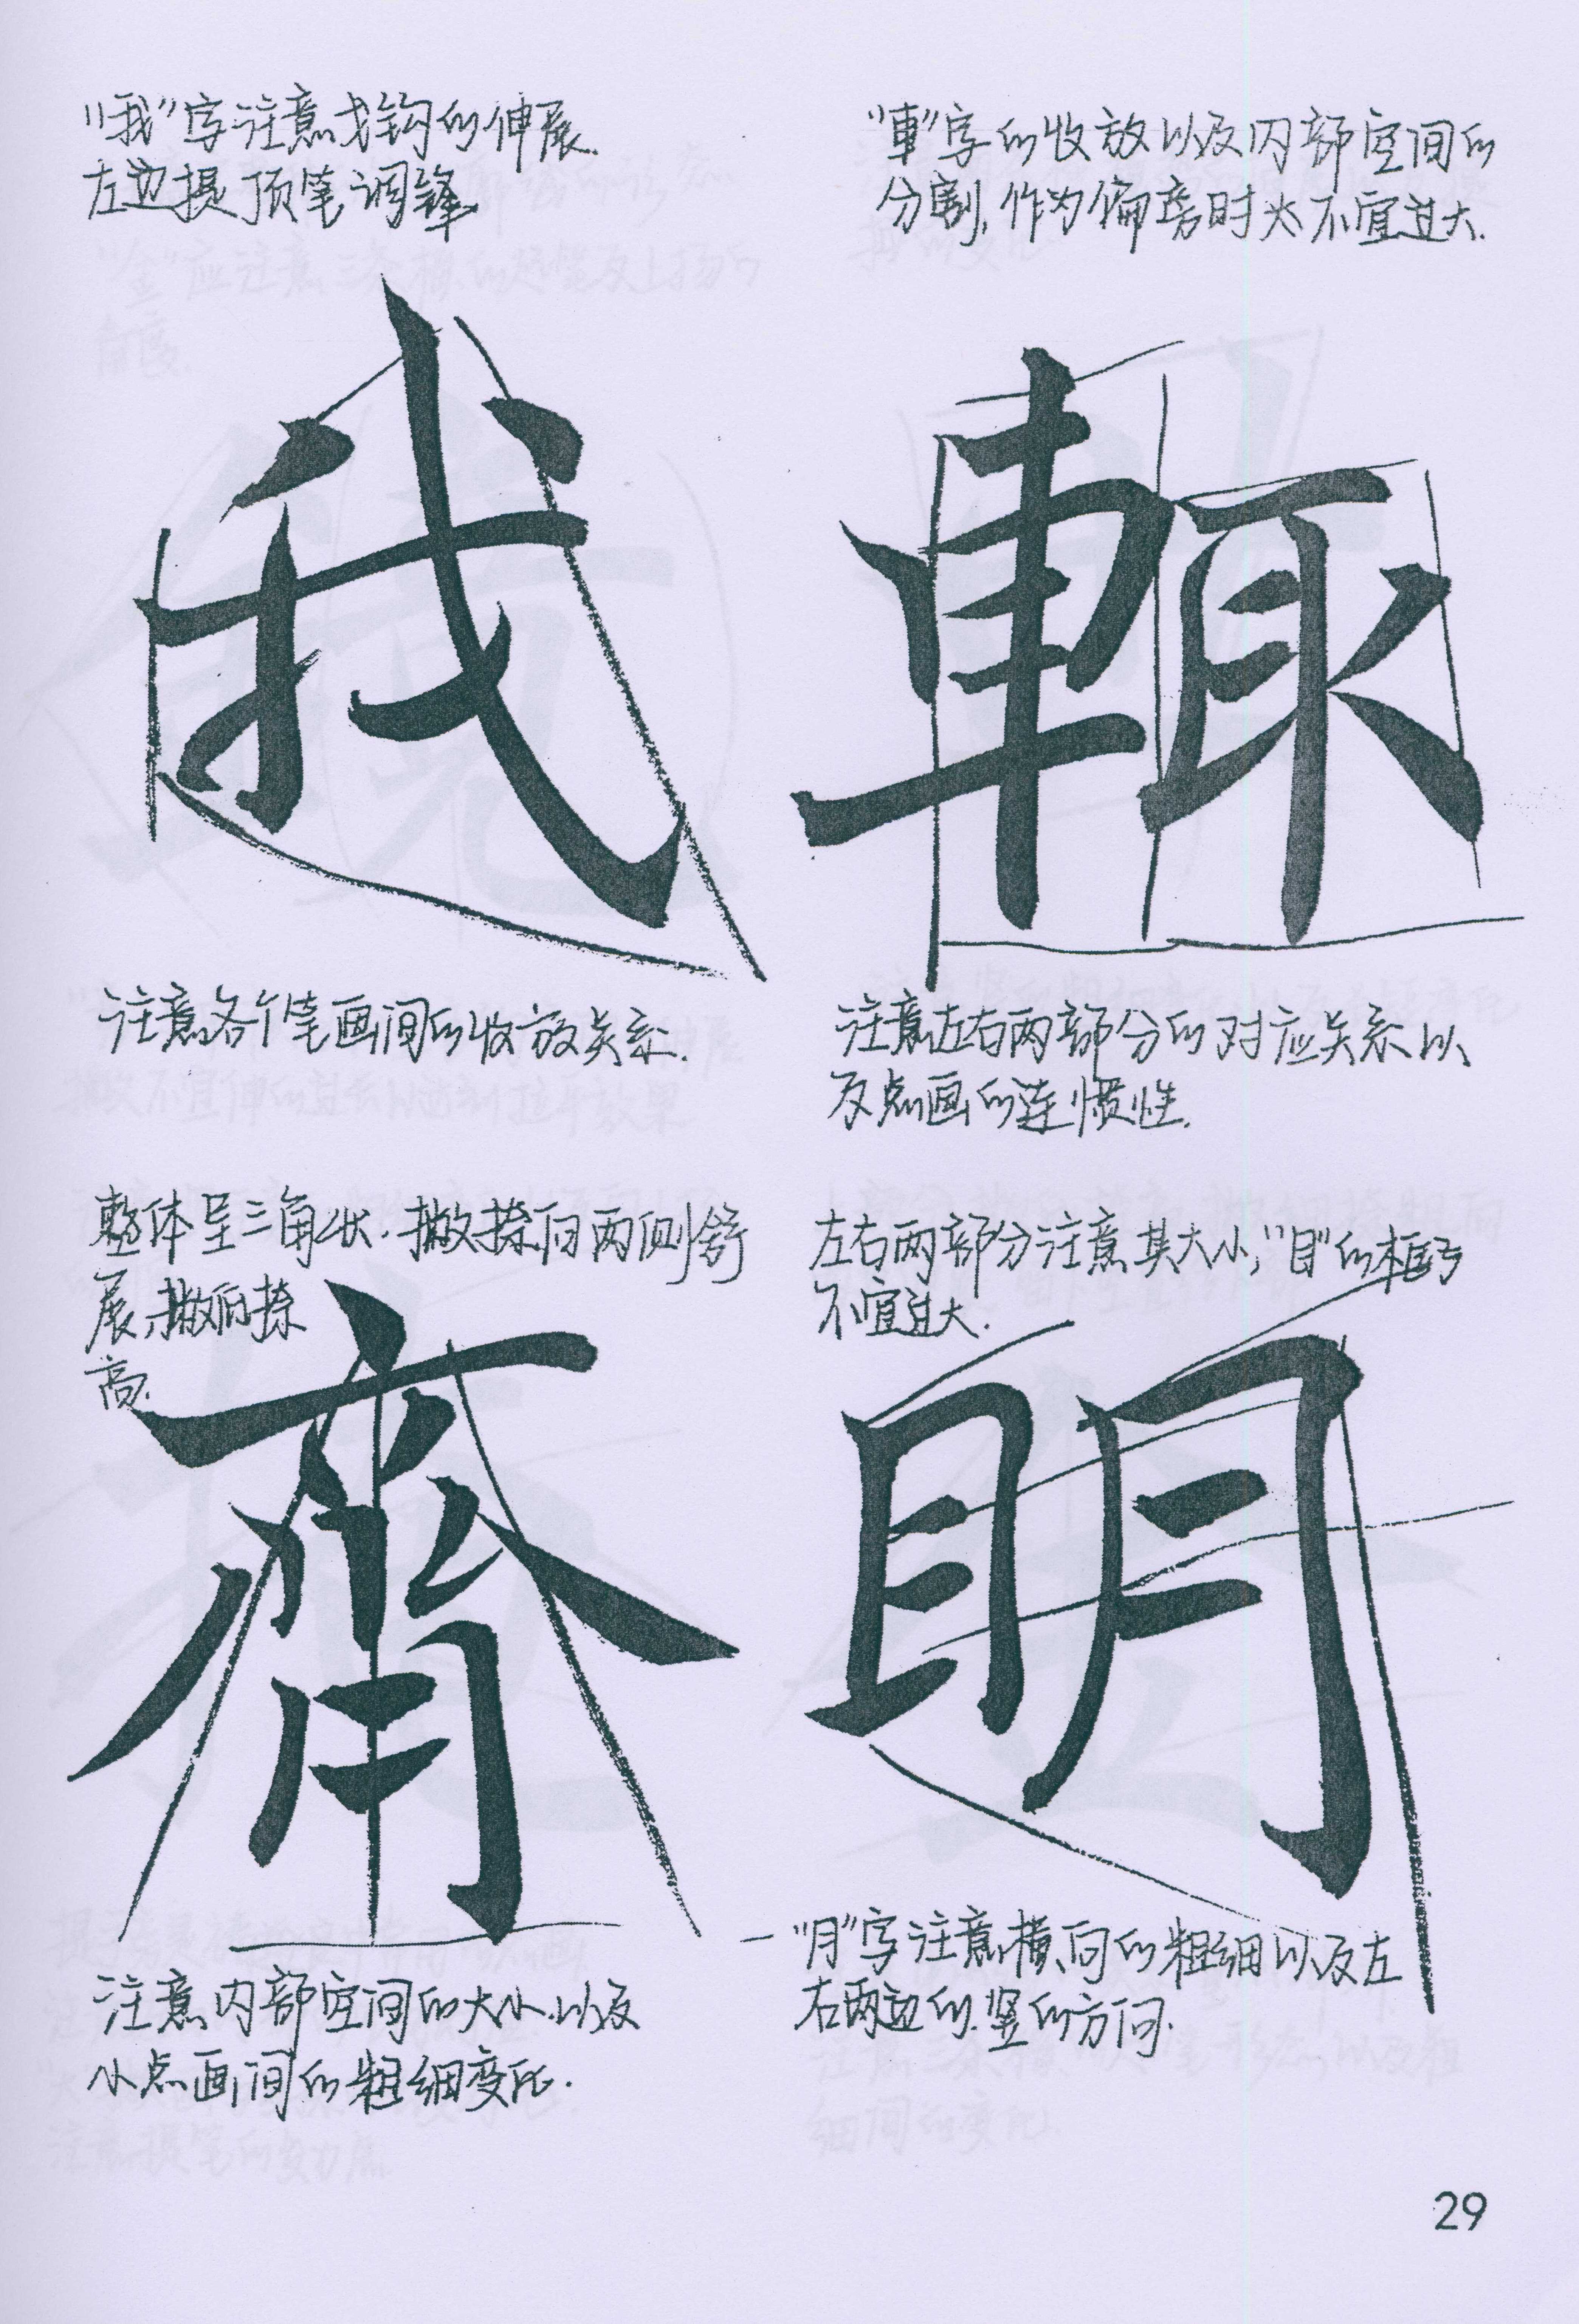 "我"字注意戈钩的伸展.
左边提顶笔调锋
我
注意各个笔画间的收放关系.
"車"字的收放以及内部空间的
分割,作为偏旁时尖不宜过大.
輙
注意左右两部分的对应关系以
及点画的连惯性.
整体呈三角状.撇捺向两侧舒
展,撇向捺
高.
齋
注意内部空间的大小.以及
小点画间的粗细变化.
左右两部分注意其大小,"目"的框子
不宜过大.
明
一"月"字注意横向的粗细以及左
右两边的竖的方向.
29